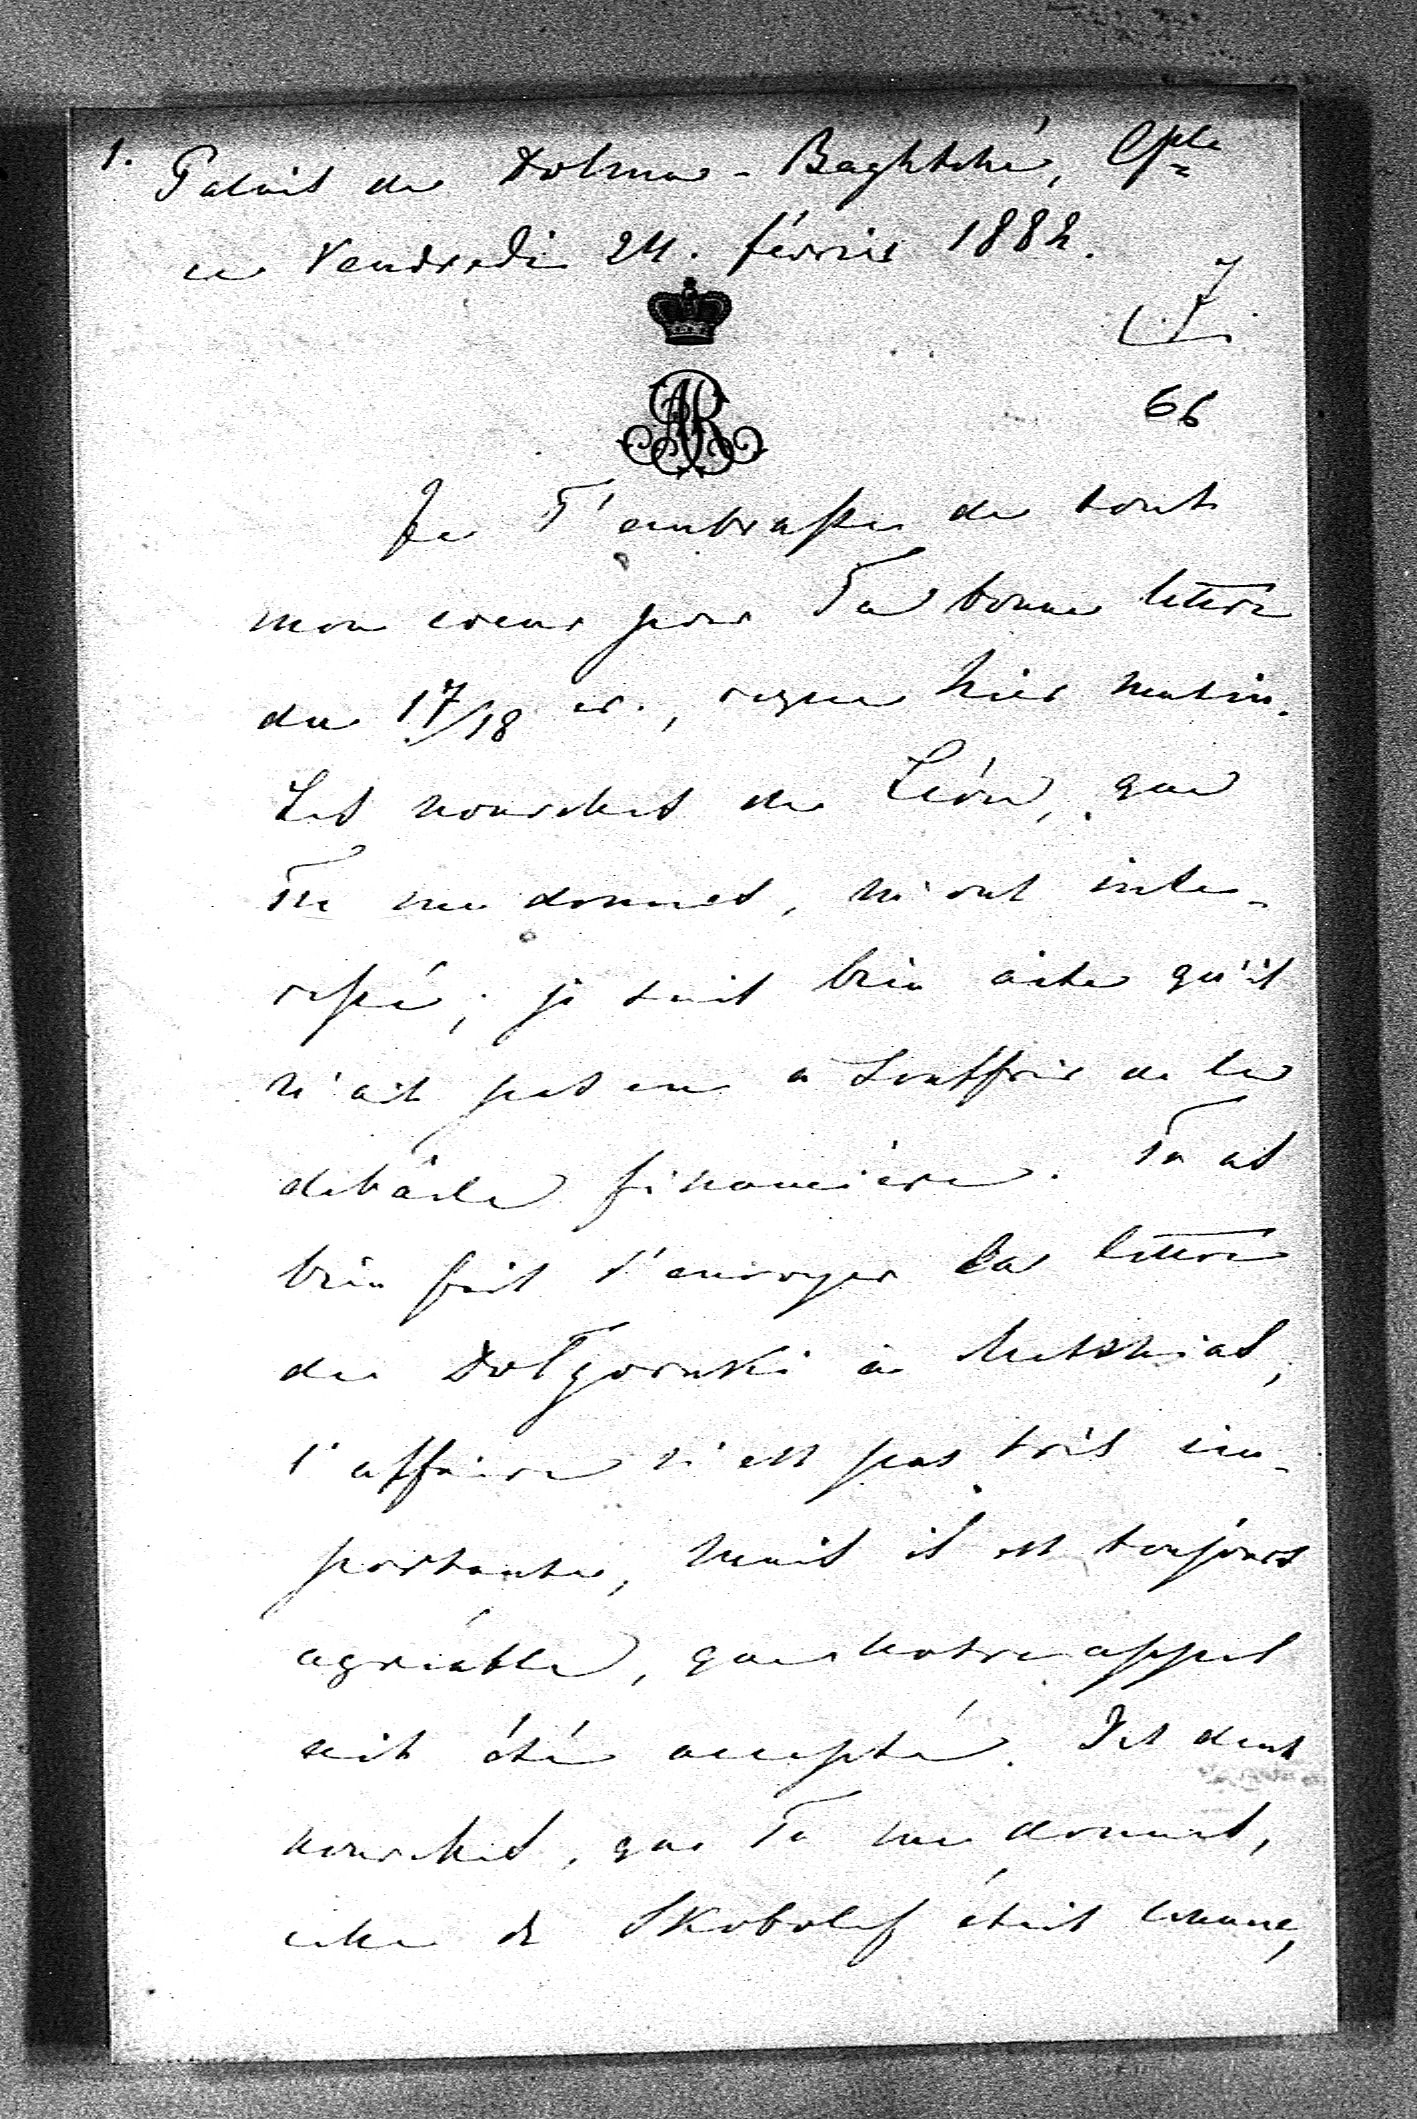 1. Palais de Dolma-Baghtché, Cple
ce Vendredi 24. février 1882.
AR
66
Je T'embrasse de tout
mon coeur pour Ta bonne lettre
du 17/18 cr., reçue hier matin.
Les nouvelles de Léon, que
Tu me donnes, m'ont inté-
ressé; je suis bien aise qu'il
n'ait pas eu à souffrir de la
debâcle financière. Tu as
bien fait d'envoyer la lettre
de Dolgoruki à Mathias,
l'affaire n'est pas très im-
portante, mais il est toujours
agréable, que notre appel
ait été accepté. Des deux
nouvelles, que Tu me donnes,
celle de Skobolef était connue,